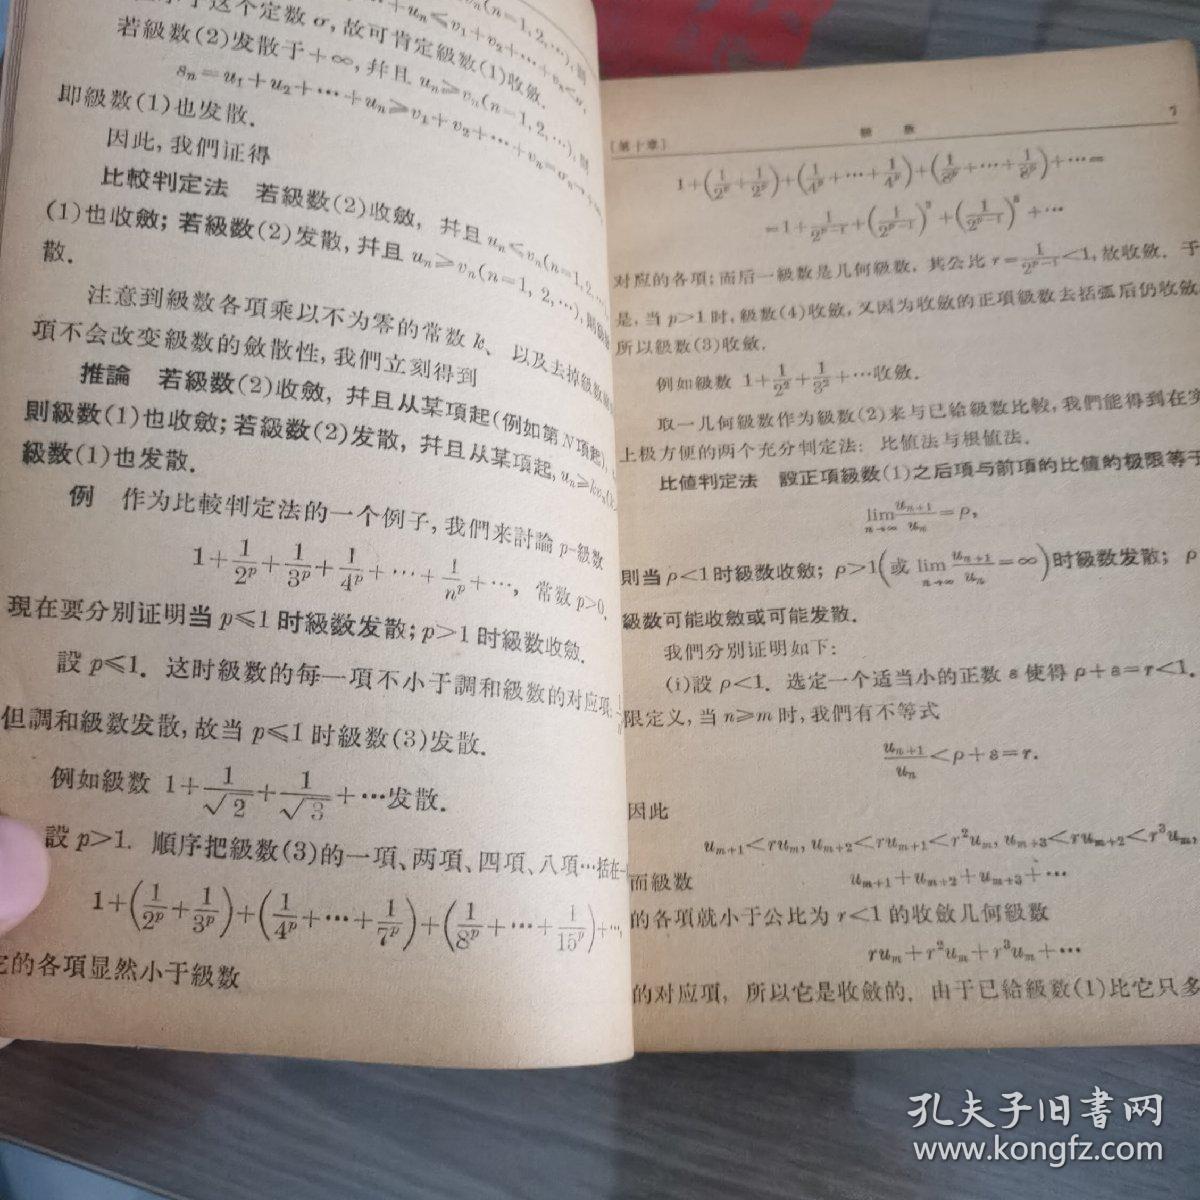 这个定数 σ, 故可肯定級数(1)收斂.
若級数(2)发散于+∞, 幷且 uₙ⩾vₙ(n=1, 2, …), 則
sₙ=u₁+u₂+…+uₙ⩾v₁+v₂+…+vₙ=σₙ
即級数(1)也发散.
因此, 我們证得
比較判定法 若級数(2)收斂, 幷且 uₙ⩽vₙ(n=1, 2,
(1)也收斂; 若級数(2)发散, 幷且 uₙ⩾vₙ(n=1, 2, …), 則級数
散.
注意到級数各項乘以不为零的常数 k、以及去掉級数
項不会改变級数的斂散性, 我們立刻得到
推論 若級数(2)收斂, 幷且从某項起(例如第 N 項起),
則級数(1)也收斂; 若級数(2)发散, 幷且从某項起, uₙ⩾kvₙ
級数(1)也发散.
例 作为比較判定法的一个例子, 我們来討論 p-級数
1+1/2ᵖ+1/3ᵖ+1/4ᵖ+…+1/nᵖ+…, 常数 p>0.
現在要分別证明当 p⩽1 时級数发散; p>1 时級数收斂.
設 p⩽1. 这时級数的每一項不小于調和級数的对应項
但調和級数发散, 故当 p⩽1 时級数(3)发散.
例如級数 1+1/√2+1/√3+…发散.
設 p>1. 順序把級数(3)的一項、两項、四項、八項…括在一
1+(1/2ᵖ+1/3ᵖ)+(1/4ᵖ+…+1/7ᵖ)+(1/8ᵖ+…+1/15ᵖ)+…,
的各項显然小于級数
[第十章] 級数 7
1+(1/2ᵖ+1/2ᵖ)+(1/4ᵖ+…+1/4ᵖ)+(1/8ᵖ+…+1/8ᵖ)+…=
=1+1/2ᵖ⁻¹+(1/2ᵖ⁻¹)²+(1/2ᵖ⁻¹)³+…
对应的各項; 而后一級数是几何級数, 其公比 r=1/2ᵖ⁻¹<1, 故收斂. 于
是, 当 p>1 时, 級数(4)收斂, 又因为收斂的正項級数去括弧后仍收斂
所以級数(3)收斂.
例如級数 1+1/2²+1/3²+…收斂.
取一几何級数作为級数(2)来与已給級数比較, 我們能得到在实
上极方便的两个充分判定法: 比值法与根值法.
比值判定法 設正項級数(1)之后項与前項的比值的极限等于
lim n→∞ uₙ₊₁/uₙ=ρ,
則当 ρ<1 时級数收斂; ρ>1(或 lim n→∞ uₙ₊₁/uₙ=∞)时級数发散; ρ
級数可能收斂或可能发散.
我們分別证明如下:
(i)設 ρ<1. 选定一个适当小的正数 ε 使得 ρ+ε=r<1.
限定义, 当 n⩾m 时, 我們有不等式
uₙ₊₁/uₙ<ρ+ε=r.
因此
uₘ₊₁<ruₘ, uₘ₊₂<ruₘ₊₁<r²uₘ, uₘ₊₃<ruₘ₊₂<r³uₘ,
而級数 uₘ₊₁+uₘ₊₂+uₘ₊₃+…
的各項就小于公比为 r<1 的收斂几何級数
ruₘ+r²uₘ+r³uₘ+…
的对应項, 所以它是收斂的. 由于已給級数(1)比它只多
孔夫子旧书网
www.kongfz.com